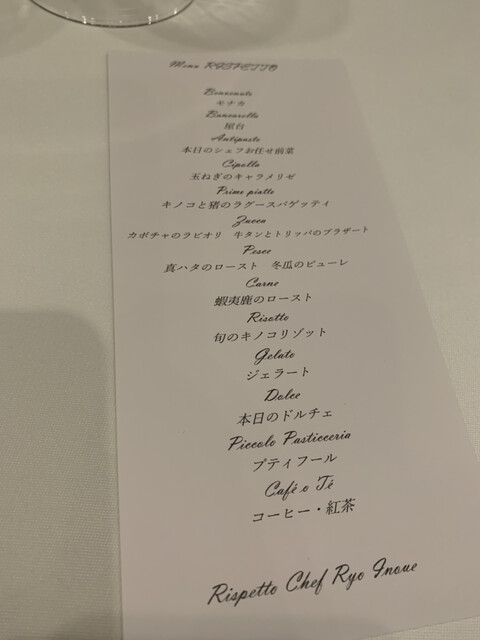 Menu RISPETTO
Benvenuto
モナカ
Bancarella
屋台
Antipasto
本日のシェフお任せ前菜
Cipolla
玉ねぎのキャラメリゼ
Primo piatto
キノコと猪のラグースパゲッティ
Zucca
カボチャのラビオリ 牛タンとトリッパのブラザート
Pesce
真ハタのロースト 冬瓜のピューレ
Carne
蝦夷鹿のロースト
Risotto
旬のキノコリゾット
Gelato
ジェラート
Dolce
本日のドルチェ
Piccolo Pasticceria
プティフール
Café o Té
コーヒー・紅茶
Rispetto Chef Ryo Inoue